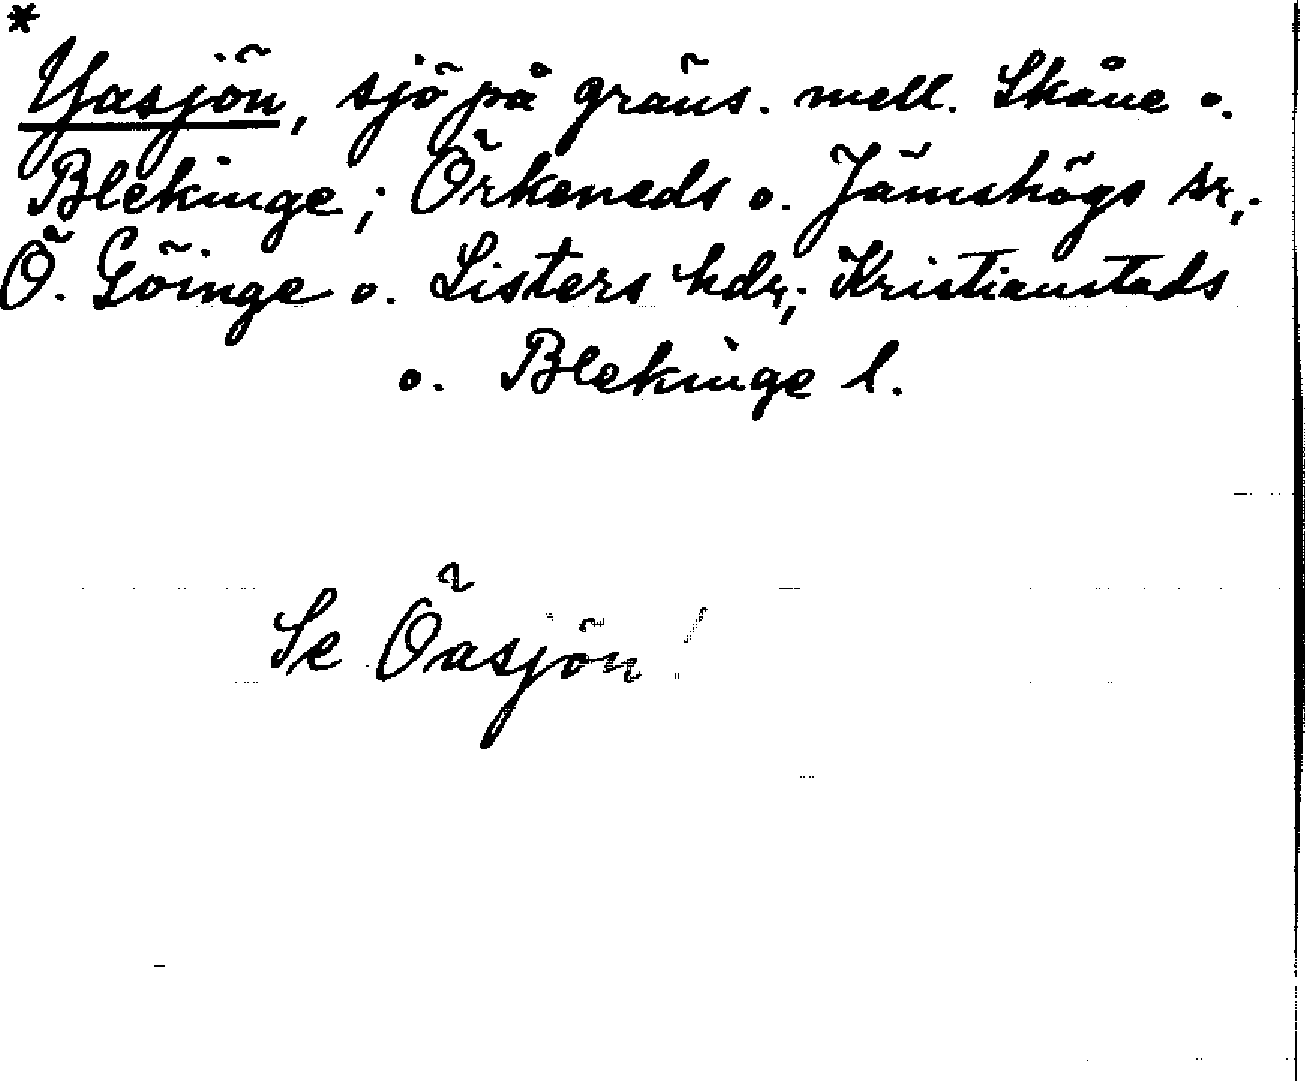 *
Yasjön, sjö på gräns. mell. Skåne o.
Blekinge; Örkeneds o. Jämshögs sr.;
Ö. Göinge o. Listers hdr; Kristianstads
o. Blekinge l.
Se Öasjön!